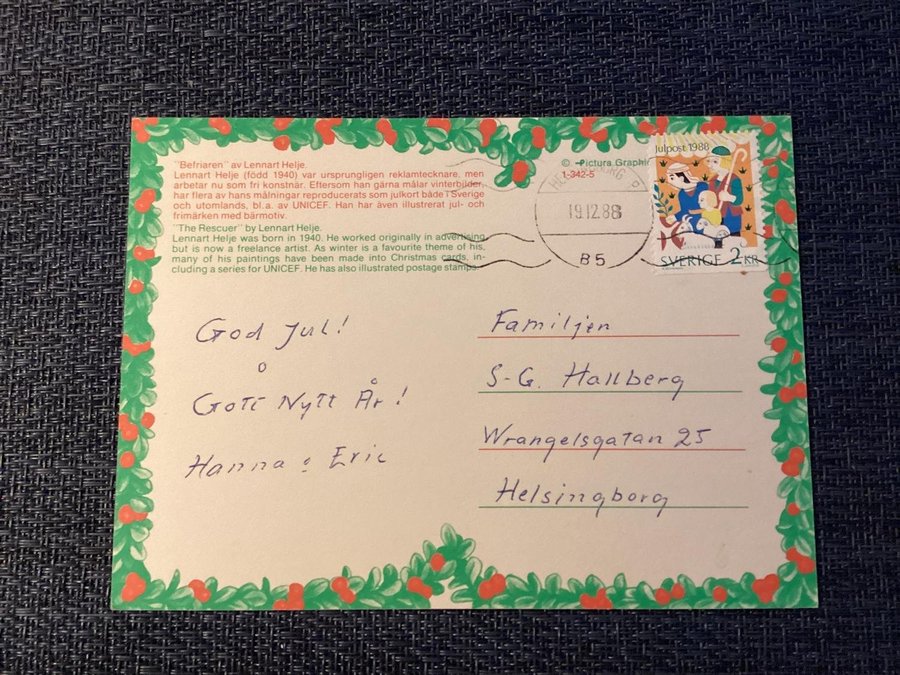 "Befriaren" av Lennart Helje.
Lennart Helje (född 1940) var ursprungligen reklamtecknare, men
arbetar nu som fri konstnär. Eftersom han gärna målar vinterbilder,
har flera av hans målningar reproducerats som julkort både i Sverige
och utomlands, bl.a. av UNICEF. Han har även illustrerat jul- och
frimärken med bärmotiv.
"The Rescuer" by Lennart Helje.
Lennart Helje was born in 1940. He worked originally in advertising
but is now a freelance artist. As winter is a favourite theme of his,
many of his paintings have been made into Christmas cards, in-
cluding a series for UNICEF. He has also illustrated postage stamps.
© Pictura Graphic
1-342-5
19.12.88
B5
Julpost 1988
SVERIGE 2 KR
God Jul!
o
Gott Nytt År!
Hanna o Eric
Familjen
S-G. Hallberg
Wrangelsgatan 25
Helsingborg